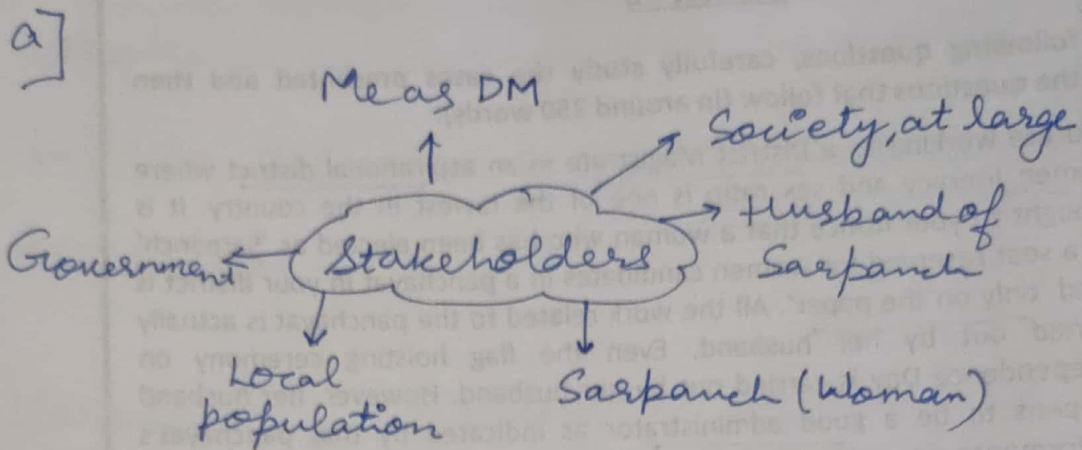 a]
Me as DM
Society, at large
Husband of
Sarpanch
Government
Stakeholders
Local
population
Sarpanch (Woman)